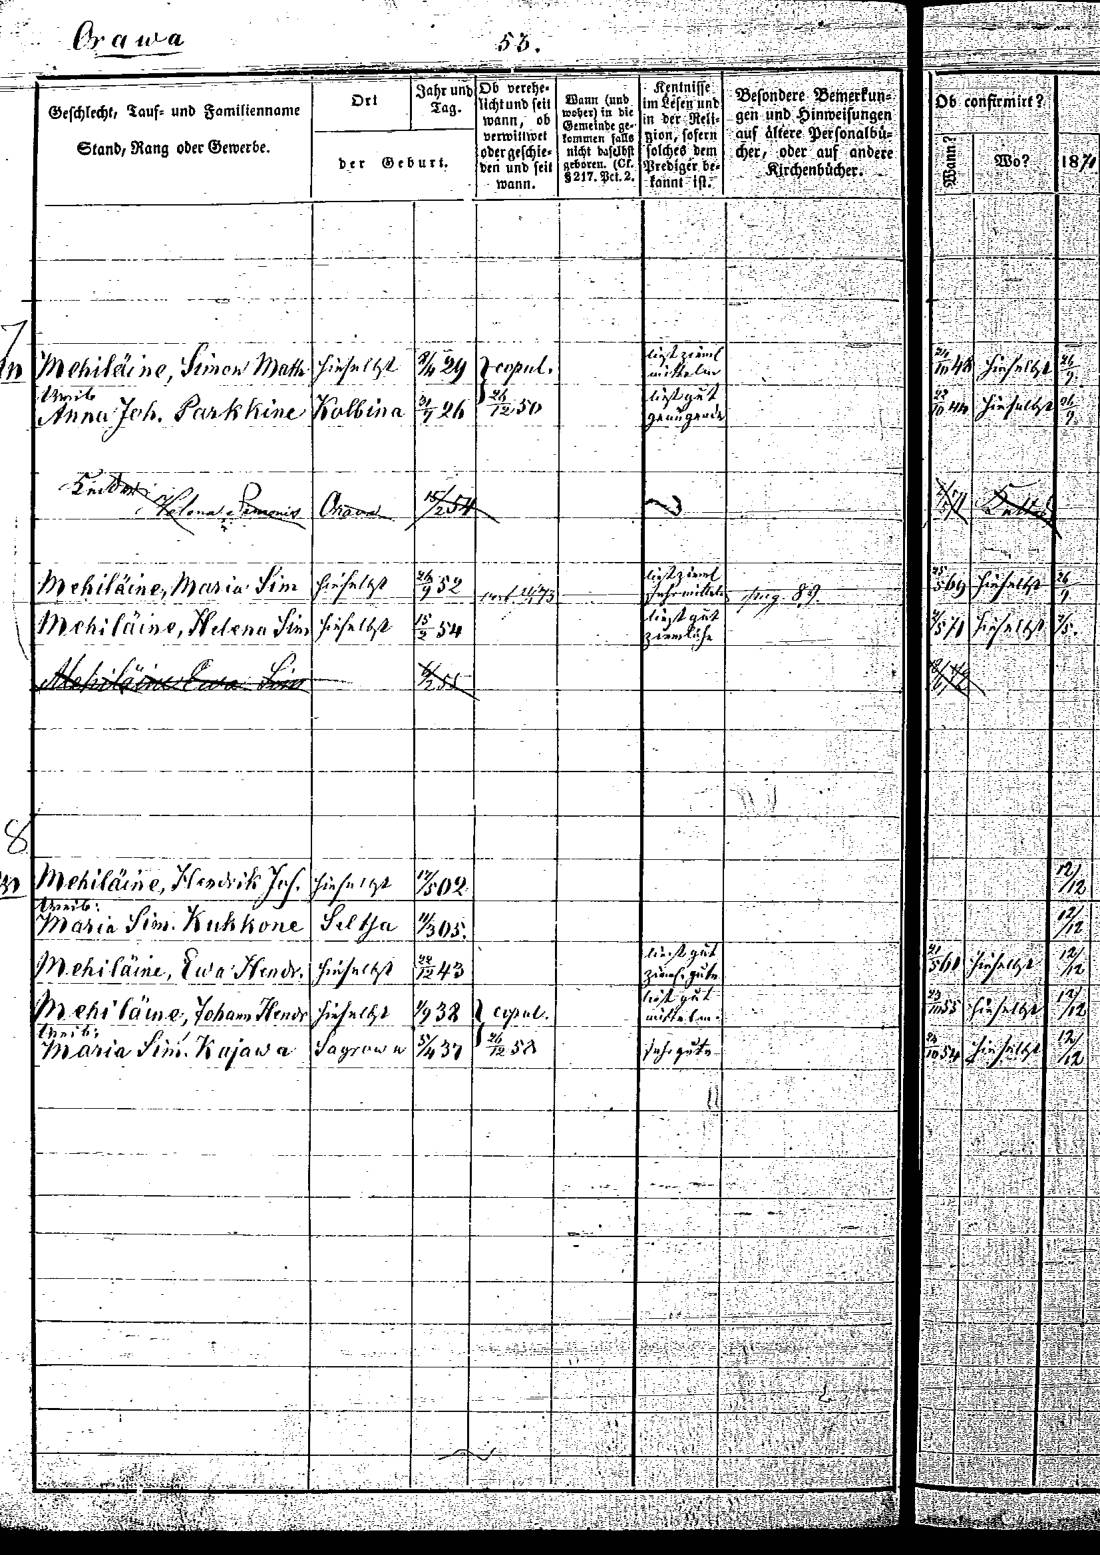 Orawa
53.
Geschlecht, Tauf- und Familienname
Stand, Rang oder Gewerbe.
Ort
der Geburt.
Jahr und
Tag.
Ob verehe-
licht und seit
wann, ob
verwittwet
oder geschie-
den und seit
wann.
Wann (und
woher) in die
Gemeinde ge-
kommen falls
nicht daselbst
geboren. (Cf.
§ 217. Pct. 2.
Kentnisse
im Lesen und
in der Reli-
gion, sofern
solches dem
Prediger be-
kannt ist.
Besondere Bemerkun-
gen und Hinweisungen
auf ältere Personalbü-
cher, oder auf andere
Kirchenbücher.
Ob confirmirt?
Wann?
Wo?
1870
7
Mehiläine, Simon Math. hieselbst 29 copul. liest zieml mittelm 48 hieselbst 26/9
Weib
Anna Joh. Parkkine Kolbina 26 26/12 50 liest gut genügende 22/10 44 hieselbst 26/9
Kinder
Helena Simonis Orawa 15/2 54
Mehiläine, Maria Sim hieselbst 26/9 52 liest zieml pag. 89. 25/5 69 hieselbst 26/9
Mehiläine, Helena Sim hieselbst 15/2 54 liest gut ziemliche 2/5 71 hieselbst 2/5.
Mehiläine Ewa Sim
8
Mehiläine, Hendrik Joh. hieselbst 17/5 02 12/12
Weib:
Maria Sim. Kukkone Seltsa 11/3 05. 12/12
Mehiläine, Ewa Hendr. hieselbst 22/12 43 liest gut 21/5 61 hieselbst 12/12
Mehiläine, Johann Hendr hieselbst 1/9 32 copul. liest gut mittelm. 23/10 55 hieselbst 12/12
Weib:
Maria Sim. Kajawa Sagrowa 5/4 37 26/12 58 sehr gute 24/10 54 hieselbst 12/12